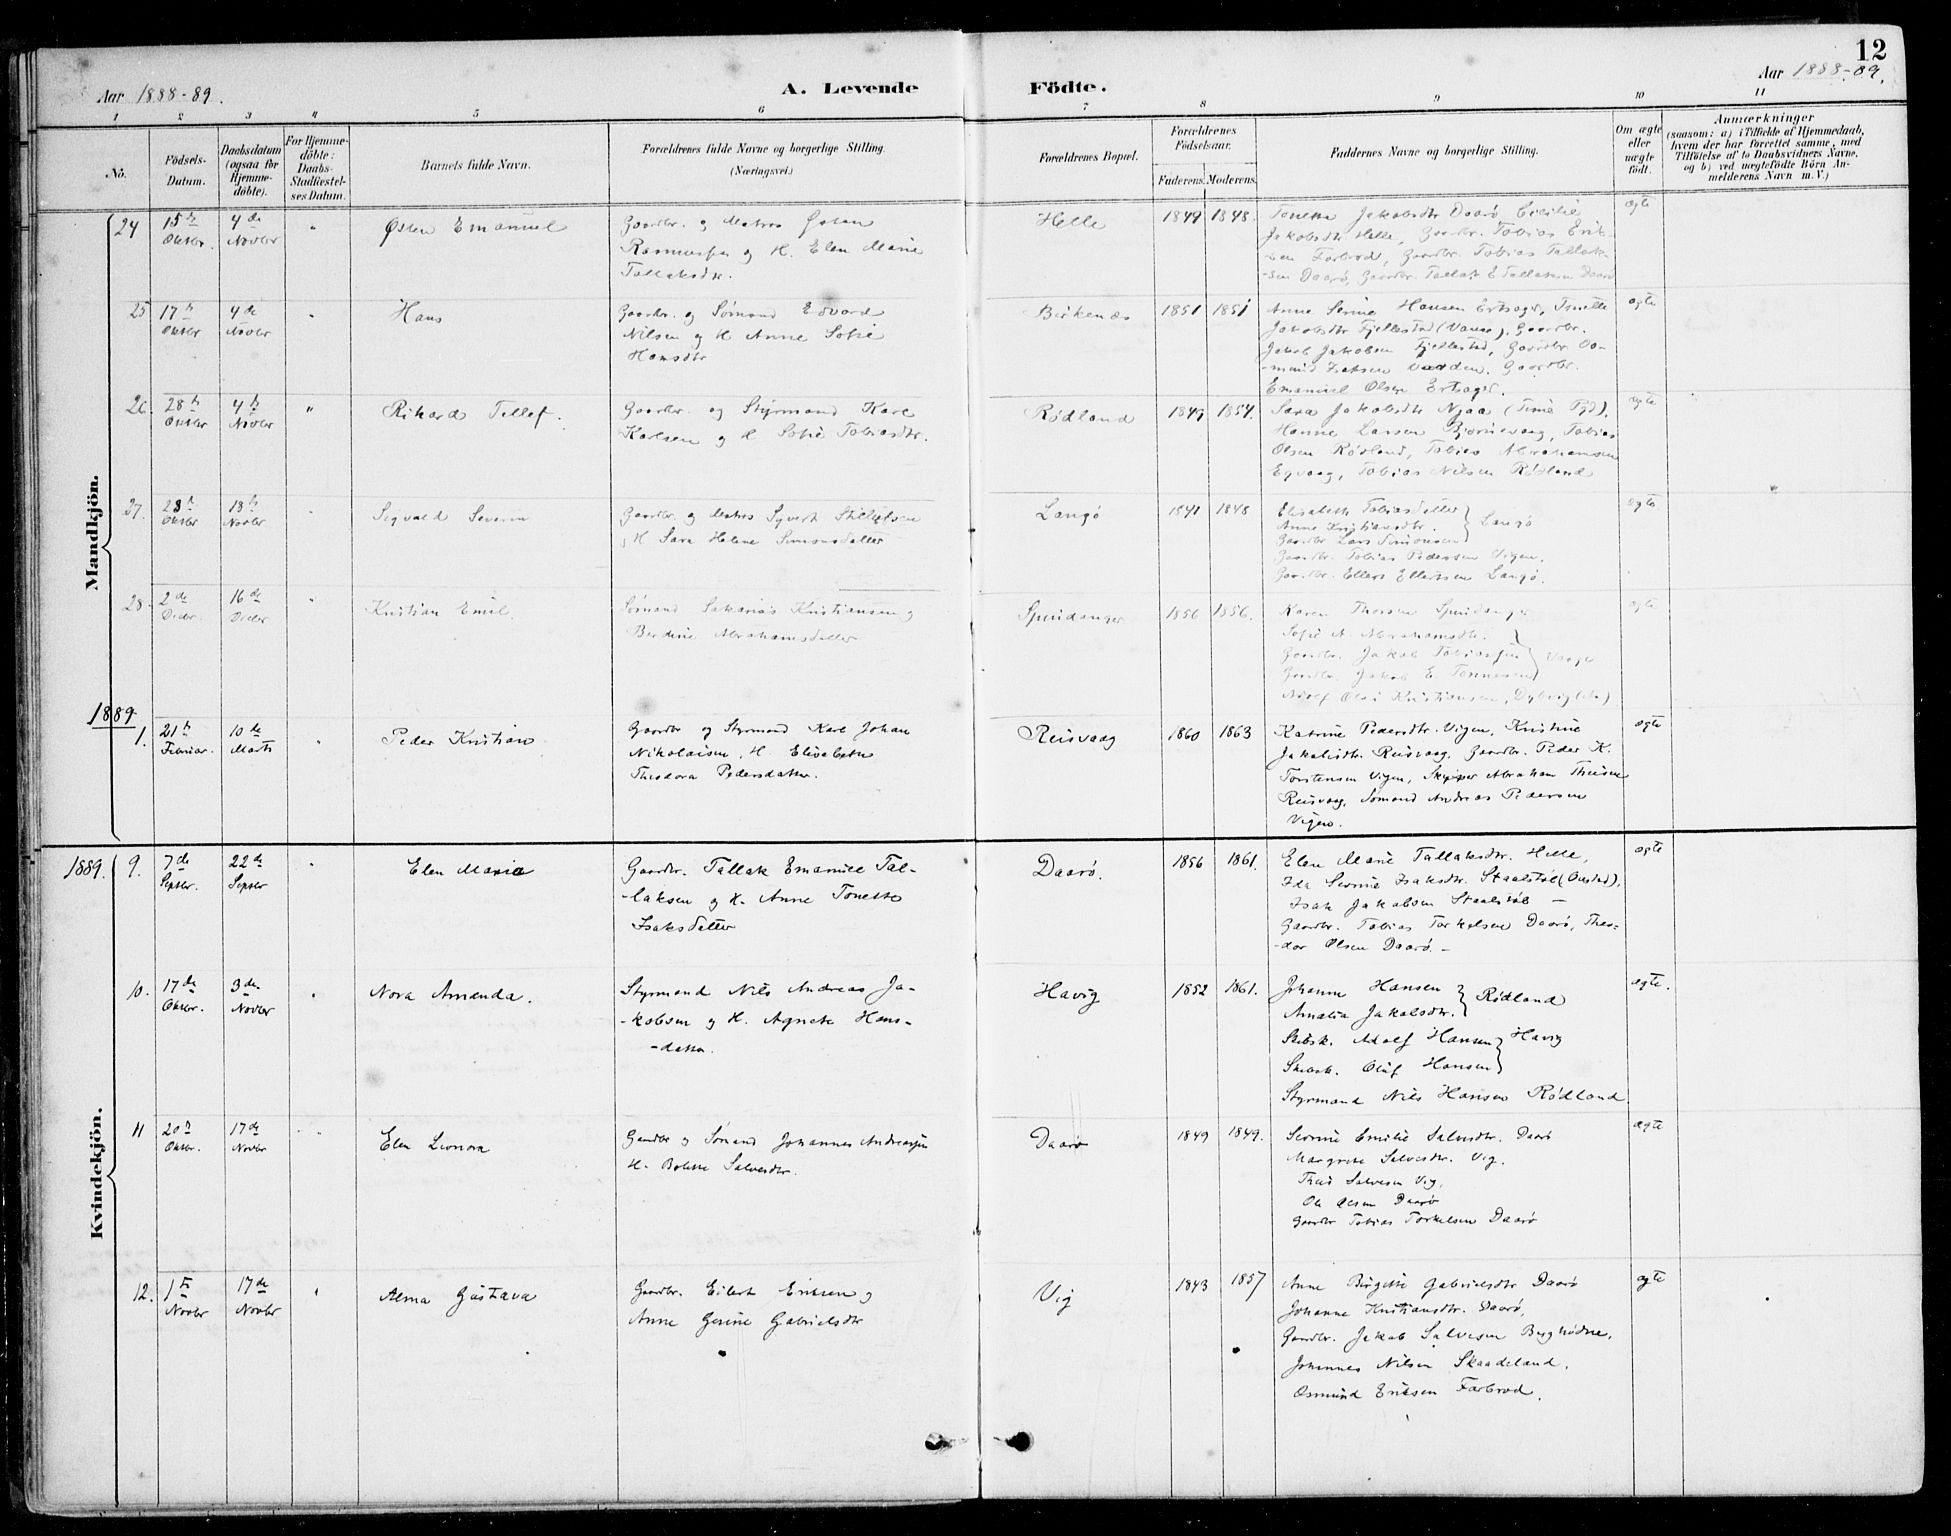 12
Aar 1888-89.
A. Levende
Födte.
Aar 1888-89.
1 2 3 4 5 6 7 8 9 10 11
No.
Födsels-
Datum.
Daabsdatum
(ogsaa for
Hjemme-
döbte).
For Hjemme-
döbte:
Daabs-
Stadfæstel-
ses Datum.
Barnets fulde Navn.
Forældrenes fulde Navne og borgerlige Stilling.
(Næringsvei.)
Forældrenes Bopæl.
Forældrenes
Födselsaar.
Faderens. Moderens.
Faddernes Navne og borgerlige Stilling.
Om ægte
eller
uægte
födt.
Anmærkninger
(saasom: a) i Tilfælde af Hjemmedaab,
hvem der har forrettet samme, med
Tilföielse af to Daabsvidners Navne,
og b) ved uægtefödte Börn An-
melderens Navn m. V.)
Mandkjön.
24
15de
Oktbr.
4de
Novbr
"
Østen Emanuel
Gaardbr. og Matros Østen
Rasmussen og H. Elen Marie
Tallaksdtr.
Helle
1849
1848.
Tonetta Jakobsdtr Daarø Cecilie
Jakobsdtr Helle, Gaardbr. Tobias Erik-
sen Farbrod, Gaardbr. Tobias Tallak-
-sen Daarø, Gaardbr. Tallak E Tallaksen Daarø
ægte
25
17de
Oktbr
4de
Novbr
"
Hans
Gaardbr. og Sømand Edvard
Nilsen og H Anne Sofie
Hansdtr
Birkenæs
1851
1851
Anne Serine Hansen Ertzeger, Tonette
Jakobsdtr Fjellestad (Vanse), Gaardbr.
Jakob Jakobsen Fjellestad, Gaardbr Os-
-mund Isaksen Varden. Gaardbr.
Emanuel Olsen Ertzeger.
ægte
26.
28de
Oktbr
4de
Novbr
"
Rikard Tellef.
Gaardbr. og Styrmand Karl
Karlsen og H Sofie Tobiasdtr.
Rødland
1849
1854.
Sara Jakobsdtr Njaa (Time Pgd).
Hanne Larsen Bjørnevaag, Tobias
Olsen Rødland, Tobias Abrahamsen
Egvaag, Tobias Nilsen Rødland
ægte
27.
28de
Oktbr
18de
Novbr
"
Sigvald Severin
Gaardbr. og Matros Syvert
H Sara Helene Simonsdatter
Langø
1841
1848
Elisabeth Tobiasdatter
Anne Kristiansdtr.
Gaardbr Lars Simonsen
Langø
Gaardbr. Tobias Pedersen Vigen.
Gaardbr. Ellert Ellertsen Langø.
ægte
28.
2de
Decbr.
16de
Decbr
"
Kristian Emil.
Sømand Sakarias Kristiansen og
Berdine Abrahamsdatter
Spindanger
1856
1856.
Karen Thorsen Spindanger
Sofie A. Abrahamsdtr.
Gaardbr. Jakob Tobiassen
Vaage
Gaardbr. Jakob E. Tønnesen
Adolf Olai Kristiansen,
ægte
1889
1.
21de
Februar.
10de
Marts
"
Peder Kristian
Gaardbr og Styrmand Karl Johan
Nikolaisen, H. Elisabeth
Theodora Pedersdatter.
Reisvaag
1860
1863
Katrine Pedersdtr. Vigen, Kristine
Jakobsdtr. Reisvaag, Gaardbr. Peder K.
Torstensen Vigen, Skipper Abraham Theisen
Reisvaag, Sømand Andreas Pedersen
Vigen.
ægte
Kvindekjön.
1889.
9.
7de
Septbr.
22de
Septbr
"
Elen Maria
Gaardbr. Tallak Emanuel Tal-
-laksen og H. Anne Tonette
Isaksdatter
Daarø.
1856
1861.
Elen Marie Tallaksdtr. Helle,
Ida Serine Isaksdtr. Staalstøl (Ørestad).
Isak Jakobsen Staalstøl —
Gaardbr. Tobias Torkelsen Daarø, Theo-
-dor Olsen Daarø. —
ægte
10.
17de
Oktbr.
3de
Novbr
"
Nora Amanda.
Styrmand Nils Andreas Ja-
-kobsen og H. Agnete Hans-
-datter.
Havig
1852
1861.
Johanne Hansen
Amalia Jakobsdtr.
Rødland
Skibsk. Adolf Hansen
Havig
Skibsk. Oluf Hansen
Styrmand Nils Hansen Rødland
ægte.
11
20de
Oktbr.
17de
Novbr
"
Elen Leonora
Gaardbr og Sømand Johannes Andreassen
H. Bolette Salvesdtr.
Daarø
1849
1849.
Serine Emilie Salvesdtr. Daarø
Margrete Salvesdtr. Vig.
Theis Salvesen Vig,
Ole Olsen Daarø
Gaardbr Tobias Torkelsen Daarø
ægte
12.
1ste
Novbr
17de
Novbr
"
Alma Gustava
Gaardbr. Eilert Eriksen og
Anne Gesine Gabrielsdtr
Vig
1843
1857
Anne Birgitte Gabrielsdtr Daarø
Johanne Kristiansdtr. Daarø,
Gaardbr. Jakob Salvesen Berghødne,
Johannes Nilsen Skaadeland,
Osmund Eriksen Farbrod.
ægte